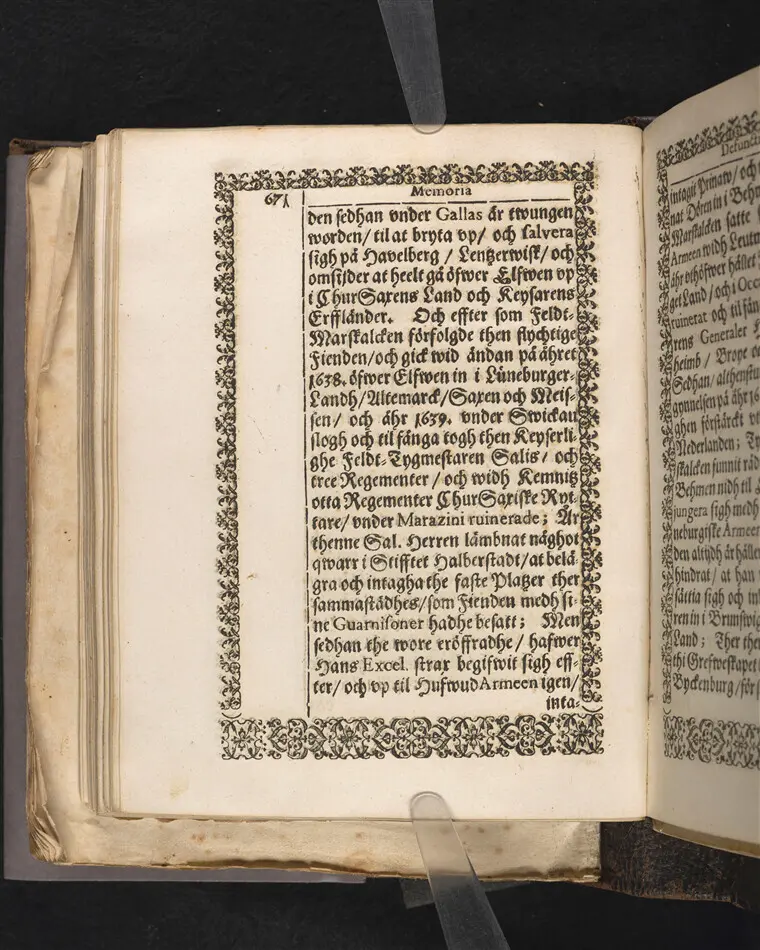 Memoria
671
den sedhan vnder Gallas är twungen
worden/ til at bryta vp/ och salvera
sigh på Havelberg / Lentzerwisk/ och
omsijder at heelt gå öfwer Elfwen vp
i ChurSaxens Land och Keysarens
Erffländer. Och effter som Feldt-
Marskalcken förfolgde then flychtige
Fienden/och gick wid ändan på åhret
1638. öfwer Elfwen in i Lüneburger-
Landh/Altemarck/Saxen och Meis-
sen/ och åhr 1639. vnder Swickau
slogh och til fånga togh then Keyserli-
ghe Feldt-Tygmestaren Salis/ och
tree Regementer / och widh Kemnitz
otta Regementer ChurSaxiske Ryt-
tare/ vnder Marazini ruinerade; Är
thenne Sal. Herren lämbnat någhot
qwarr i Stifftet Halberstadt/at belä-
gra och intagha the faste Platzer ther
sammastädhes/som Fienden medh si-
ne Guarnisoner hadhe besatt; Men
sedhan the wore eröffradhe/ hafwer
Hans Excel. strax begifwit sigh eff-
ter/ och vp til HufwudArmeen igen/
inta-
Defuncti
intagit Pirnaw/ och
Marskalcken satte
Armeen widh Leutm
åhr vthöfwer hållet
get Land/ och i Occ
ruinerat och til fån
rens Generaler H
heimb/ Broye oc
Sedhan/ althenstu
gynnelsen på åhr 16
ghen förstärckt vt
Nederlanden; Ty
skalcken funnit råd
Behmen nidh til
jungera sigh medh
neburgiske Armeen
den altijdh är hållen
hindrat/ at han
sättia sigh och in
ren in i Brunswig
Land; Ther the
thi Grefweskapet
Byckenburg/för